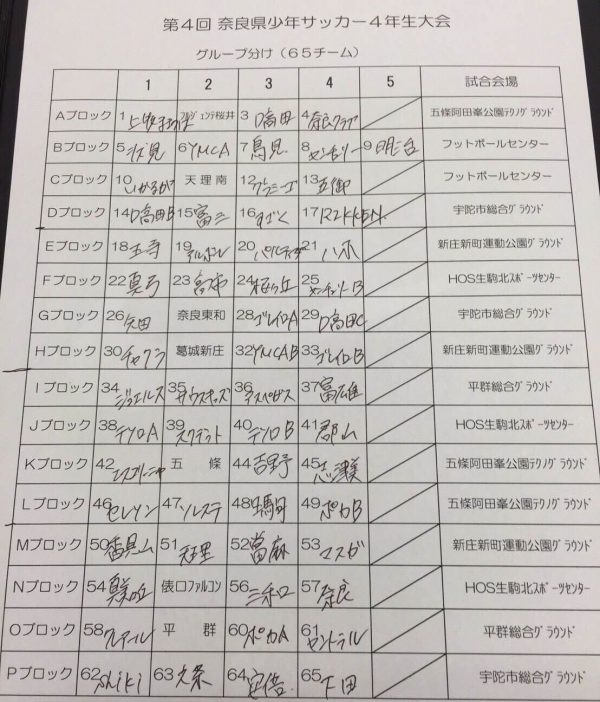 第4回 奈良県少年サッカー４年生大会
グループ分け（６５チーム）
1 2 3 4 5 試合会場
Aブロック 1 2 アルジェンテ桜井 3 D高田 4 奈良クラブ 五條阿田峯公園テクノグラウンド
Bブロック 5 伏見 6 YMCA 7 鳥見 8 センチュリー 9 明治 フットボールセンター
Cブロック 10 いかるが 天理南 12 13 五御 フットボールセンター
Dブロック 14 D高田B 15 富三 16 すごく 17 RIKKEN 宇陀市総合グラウンド
Eブロック 18 王寺 19 アルボレ 20 パルティーダ 21 ハホ 新庄新町運動公園グラウンド
Fブロック 22 真弓 23 高市 24 桜ヶ丘 25 センチュリーB HOS生駒北スポーツセンター
Gブロック 26 矢田 奈良東和 28 ゴレイロA 29 D高田C 宇陀市総合グラウンド
Hブロック 30 葛城新庄 32 YMCAB 33 ゴレイロB 新庄新町運動公園グラウンド
Iブロック 34 ジョエルス 35 サウスキッズ 36 37 富雄 平群総合グラウンド
Jブロック 38 テソロA 39 スクデット 40 テソロB 41 郡山 HOS生駒北スポーツセンター
Kブロック 42 五條 44 吉野 45 志津美 五條阿田峯公園テクノグラウンド
Lブロック 46 セレソン 47 ソルステ 48 生駒 49 ポカB 五條阿田峯公園テクノグラウンド
Mブロック 50 香具山 51 天理 52 當麻 53 マスガ 新庄新町運動公園グラウンド
Nブロック 54 真美の丘 俵口ファルコン 56 三和 57 奈良 HOS生駒北スポーツセンター
Oブロック 58 平群 60 ポカA 61 セントラル 平群総合グラウンド
Pブロック 62 shiki 63 大条 64 安倍 65 下田 宇陀市総合グラウンド